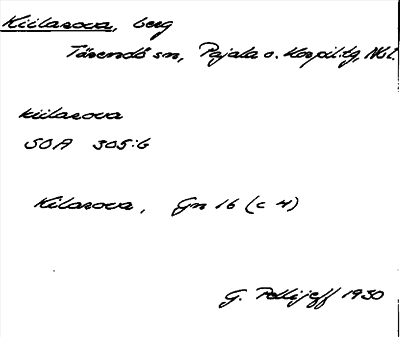 Kiilasova, berg
Tärendö sn, Pajala o. Korpil. tg, Nbl.
kiilasova
SOA 305:6
Kilasova, Gn 16 (c 4)
G. Pellijeff 1930